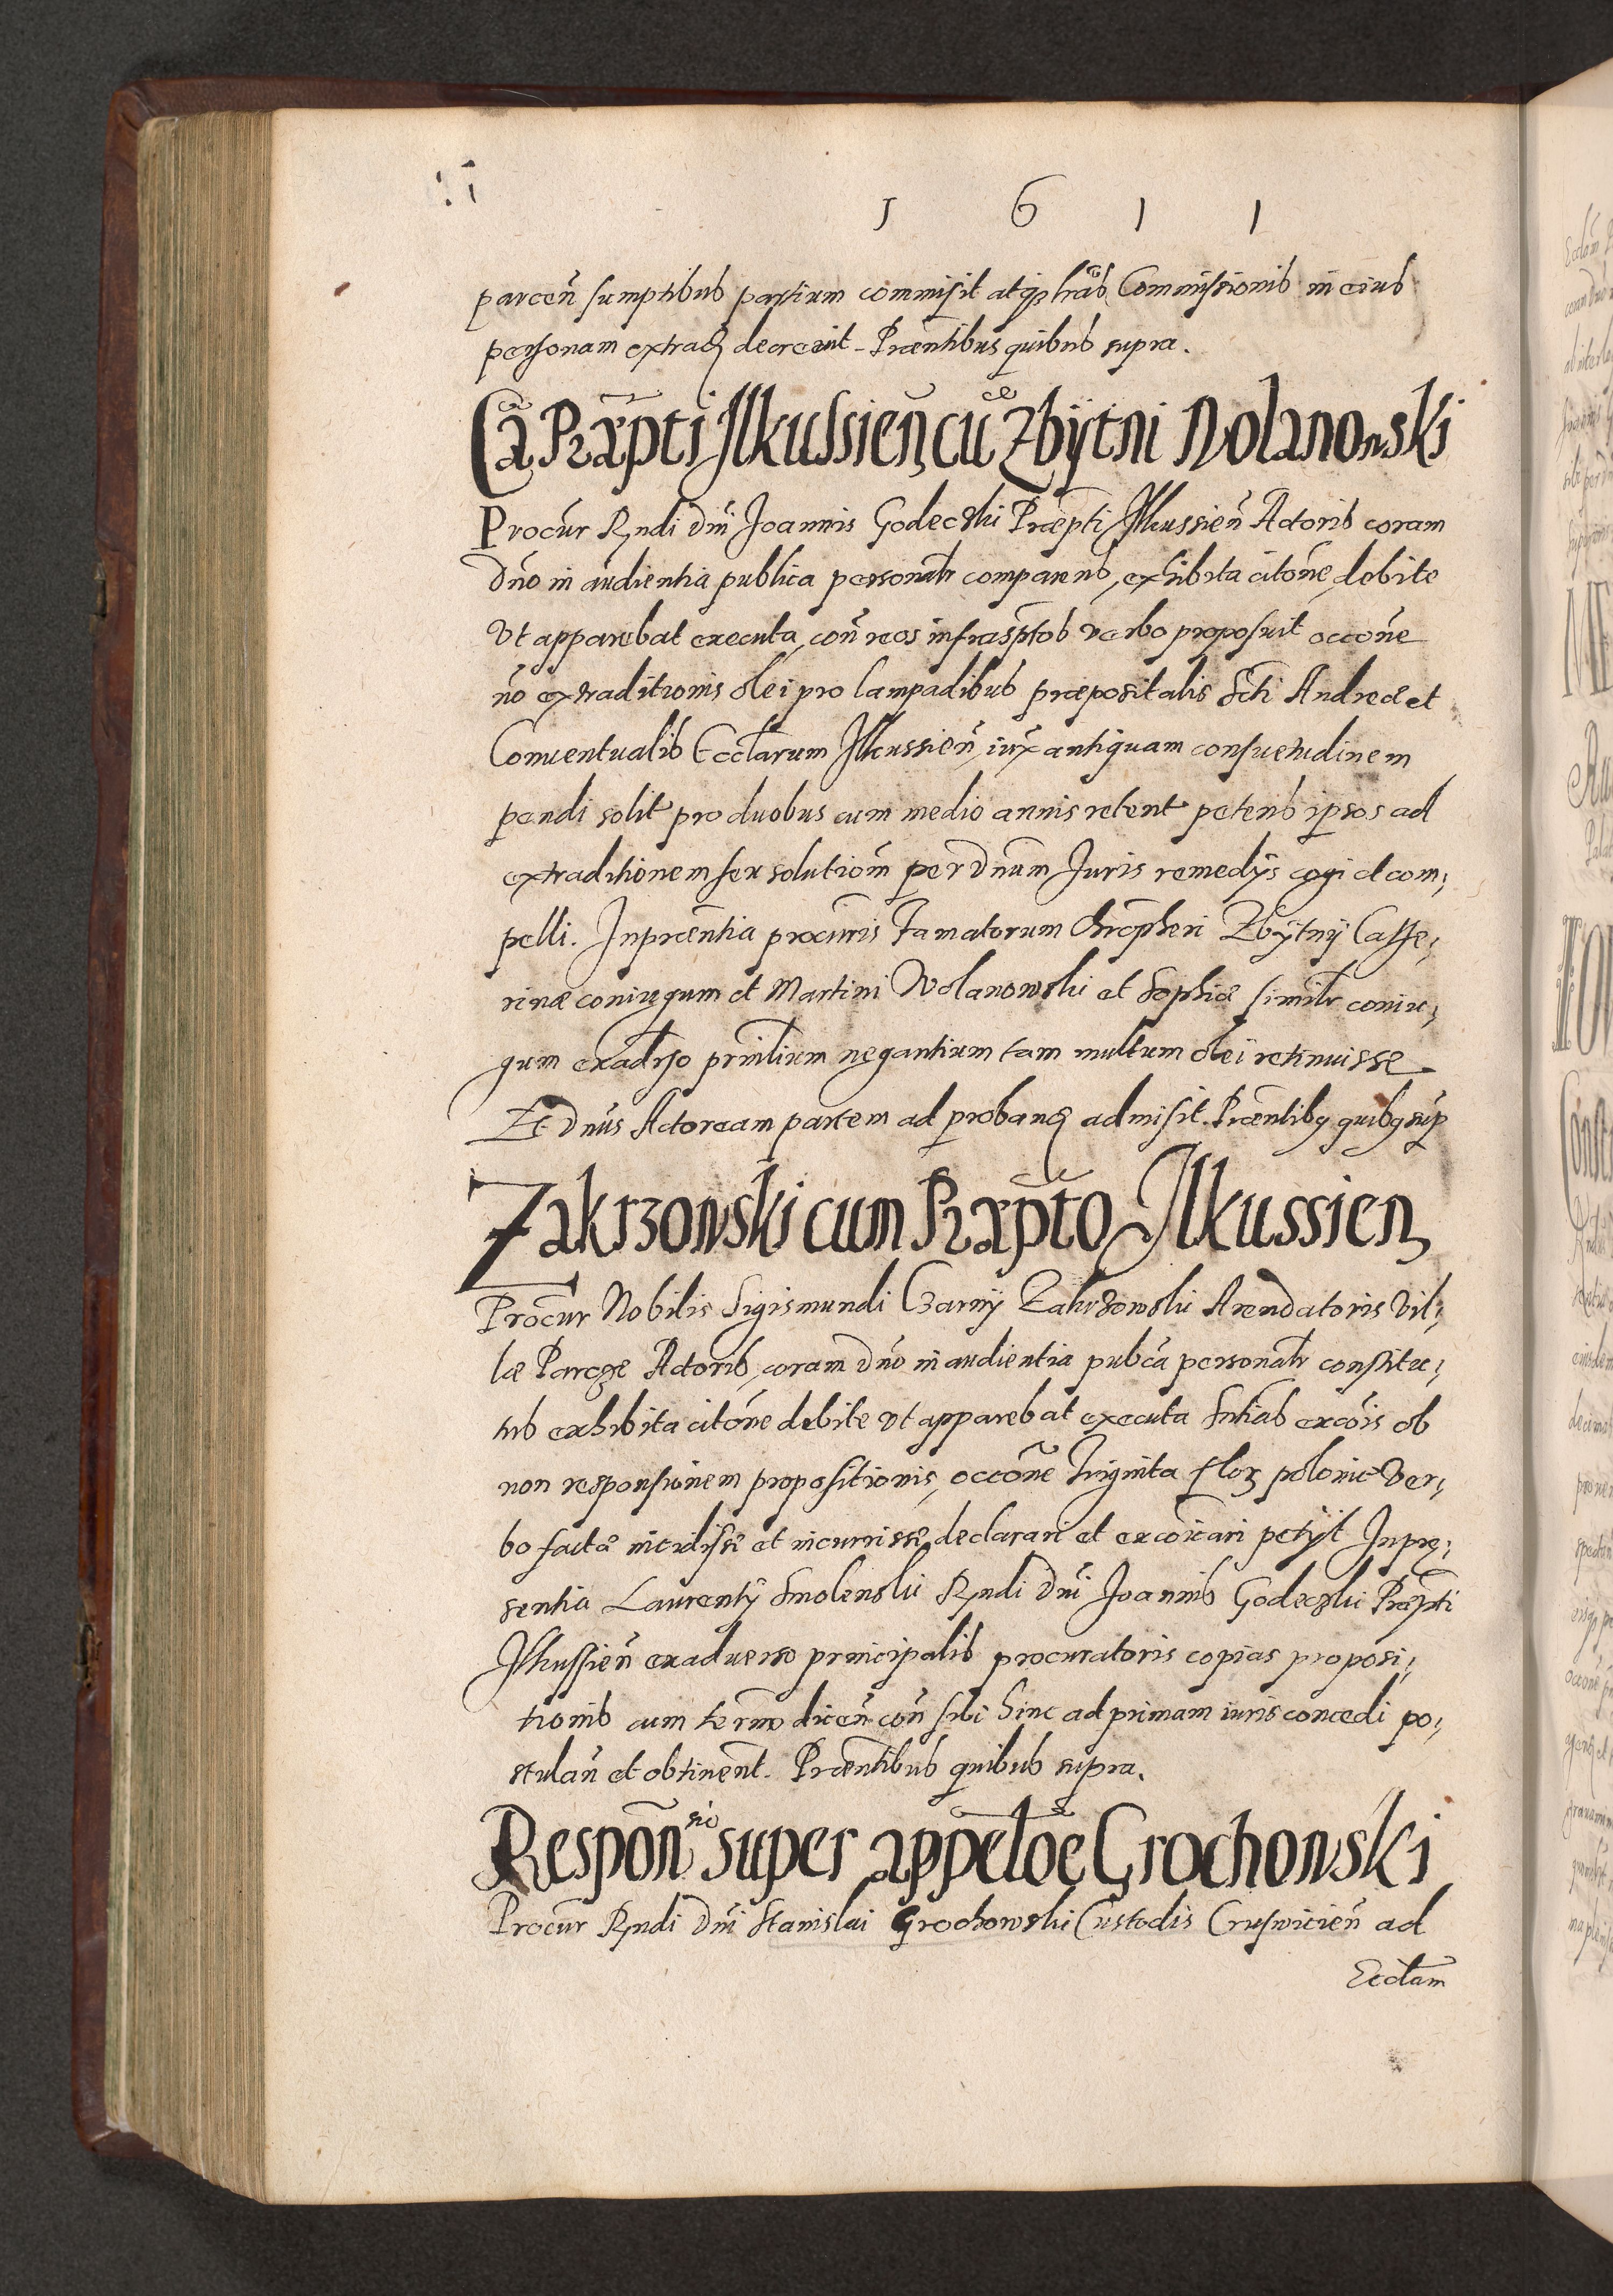 1 6 1 1
parcen̄ sumptibus partium commisit atq̃ lr̃as Commissionis in eius
personam extrad decrevit. Præntibus quibus supra.
Cã Præpti Ilkussien̄ cū Zbÿtni Wolanowski
Procur̄ Rndi Dni Joannis Godeczki Præpti Ilkussien̄ Actoris coram
Dn̄o in audientia publica personalr comparens, exhibita citōne, debite
vt apparebat executa, con̄ reos infrasptos verbo proposuit occōne
nō extraditionis olei pro lampadibus præpositalis Scti Andreæ et
Conuentualis Ecclarum Ilkussien̄, iux̄ antiquam consuetudinem
pendi solit pro duobus cum medio annis retent petens ipsos ad
extraditionem seu solutiom̄ per Dnūm Juris remedÿs cogi et com;
pelli. In præntia procuris Famatorum Chrõpheri Zbÿtnÿ Cathe;
rinæ coniugum et Martini Wolanowski et Sophiæ similr coniu;
gum exadrso prinlium negantium tam multum olei retinuisse
Et Dnūs Actoream partem ad proband admisit. Præntibq quibq sup
Zakrzowski cum Præpto Ilkussien
Procur̄ Nobilis Sigismundi Czarnÿ Zakrzowski Arendatoris Vil;
læ Parcze Actoris, coram Dn̄o in audientia pubca personalr constitu;
tus exhibita citōne debite vt apparebat executa Sntias excōis ob
non responsionem propositionis, occōne triginta flor polonic Ver;
bo factæ incidisse et incurrisse declarari et excōicari petÿt In præ;
sentia Laurentÿ Smolenski Rndi Dni Joannis Godeczki Præpti
Ilkussien̄ exaduerso principalis procuratoris copias proposi;
tionis cum termo dicen̄ con̄ sibi hinc ad primam iuris concedi po;
stulan̄ et obtinent. Præntibus quibus supra.
Respōnsio super appelōe Grochowski
Procur̄ Rndi Dni Stanislai Grochowski Custodis Cruswicien̄ ad
Ecclam